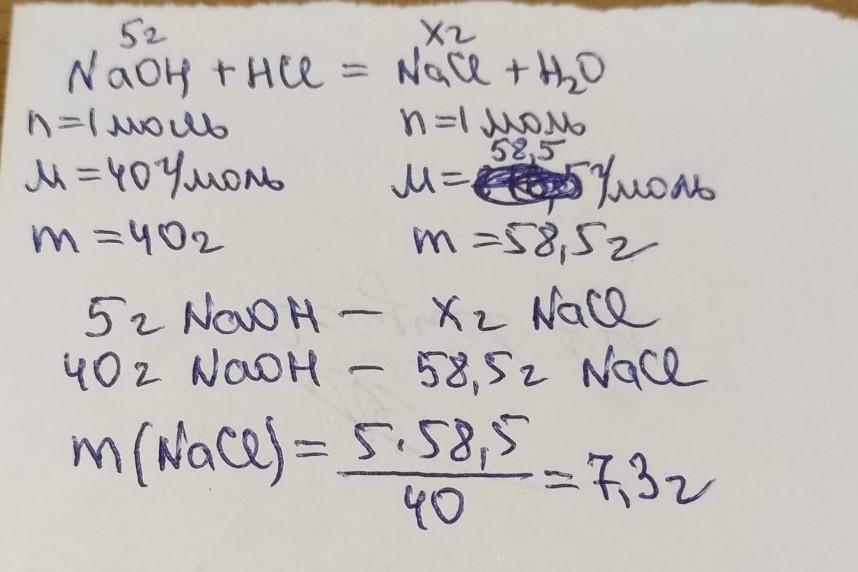 5г хг
NaOH + HCl = NaCl + H₂O
n=1моль n=1моль
58,5
M=40г/моль M= г/моль
m=40г m=58,5г
5г NaOH – хг NaCl
40г NaOH – 58,5г NaCl
m(NaCl) = 5·58,5 / 40 = 7,3г